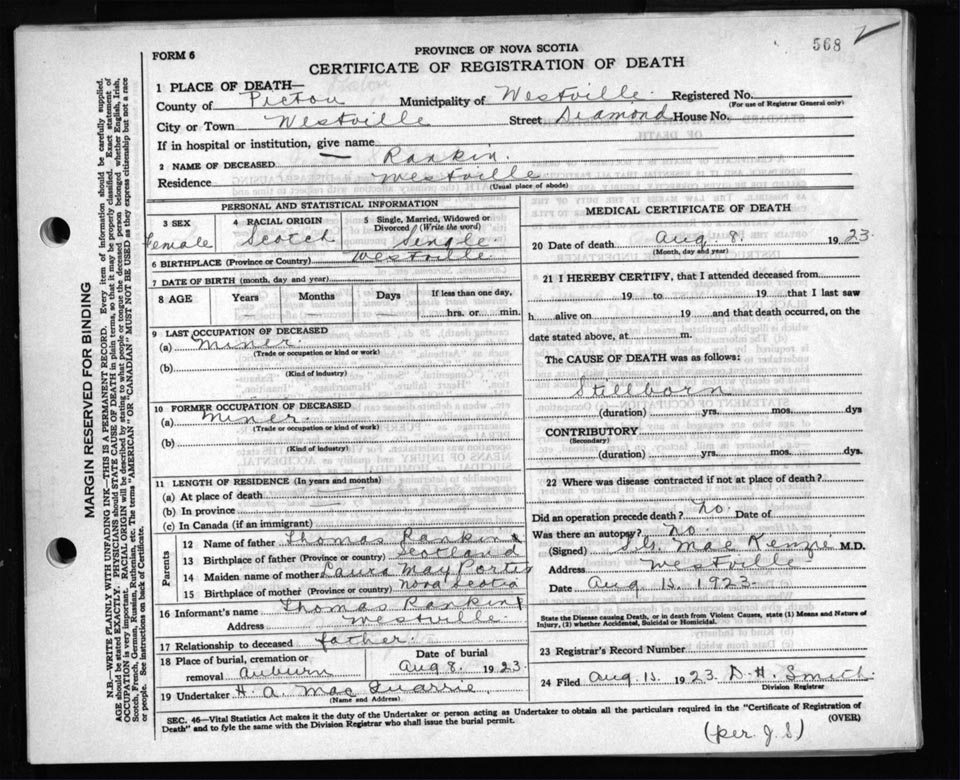 568
FORM 6
PROVINCE OF NOVA SCOTIA
CERTIFICATE OF REGISTRATION OF DEATH
1 PLACE OF DEATH—
County of Pictou Municipality of Westville Registered No.
(For use of Registrar General only)
City or Town Westville Street Diamond House No.
If in hospital or institution, give name
2 NAME OF DECEASED — Rankin.
Residence Westville
(Usual place of abode)
PERSONAL AND STATISTICAL INFORMATION
3 SEX Female
4 RACIAL ORIGIN Scotch
5 Single, Married, Widowed or Divorced (Write the word) Single
6 BIRTHPLACE (Province or Country) Westville
7 DATE OF BIRTH (month, day and year)
8 AGE Years Months Days If less than one day, hrs. or min.
9 LAST OCCUPATION OF DECEASED
(a) Miner.
(Trade or occupation or kind or work)
(b)
(Kind of industry)
10 FORMER OCCUPATION OF DECEASED
(a) Miner.
(Trade or occupation or kind of work)
(b)
(Kind of industry)
11 LENGTH OF RESIDENCE (In years and months)
(a) At place of death
(b) In province
(c) In Canada (if an immigrant)
Parents
12 Name of father Thomas Rankin
13 Birthplace of father (Province or country) Scotland
14 Maiden name of mother Laura May Porter
15 Birthplace of mother (Province or country) Nova Scotia
16 Informant's name Thomas Rankin
Address Westville.
17 Relationship to deceased father.
18 Place of burial, cremation or removal Auburn
Date of burial Aug 8. 1923.
19 Undertaker H. A. Mac Quarrie.
(Name and Address)
MEDICAL CERTIFICATE OF DEATH
20 Date of death Aug. 8. 1923.
(Month, day and year)
21 I HEREBY CERTIFY, that I attended deceased from
19 to 19 that I last saw
h alive on 19 and that death occurred, on the
date stated above, at m.
The CAUSE OF DEATH was as follows:
Stillborn
(duration) yrs. mos. dys
CONTRIBUTORY
(Secondary)
(duration) yrs. mos. dys
22 Where was disease contracted if not at place of death?
Did an operation precede death? no. Date of
Was there an autopsy? no.
(Signed) Mac Kenzie M.D.
Address Westville
Date Aug 15. 1923.
State the Disease causing Death, or in death from Violent Causes, state (1) Means and Nature of
Injury, (2) whether Accidental, Suicidal or Homicidal.
23 Registrar's Record Number
24 Filed Aug. 15. 1923. D. H. Smith.
Division Registrar
SEC. 46—Vital Statistics Act makes it the duty of the Undertaker or person acting as Undertaker to obtain all the particulars required in the "Certificate of Registration of
Death" and to fyle the same with the Division Registrar who shall issue the burial permit.
(OVER)
(per. J. S)
MARGIN RESERVED FOR BINDING
N.B.—WRITE PLAINLY WITH UNFADING INK—THIS IS A PERMANENT RECORD. Every item of information should be carefully supplied.
AGE should be stated EXACTLY. PHYSICIANS should STATE CAUSE OF DEATH in plain terms, so that it may be properly classified. Exact statement of
OCCUPATION is very important. RACIAL ORIGIN will be described by stating to what people or tongue the deceased person belonged whether English, Irish,
Scotch, French, German, Russian, Ruthenian, etc. The terms "AMERICAN" OR "CANADIAN" MUST NOT BE USED as they express citizenship but not a race
or people. See instructions on back of Certificate.